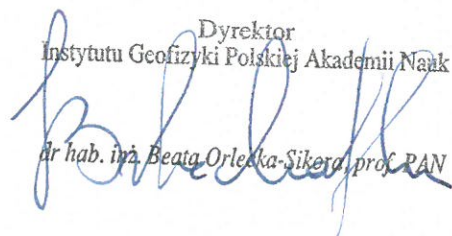 Dyrektor
Instytutu Geofizyki Polskiej Akademii Nauk
dr hab. inż. Beata Orlecka-Sikora, prof. PAN